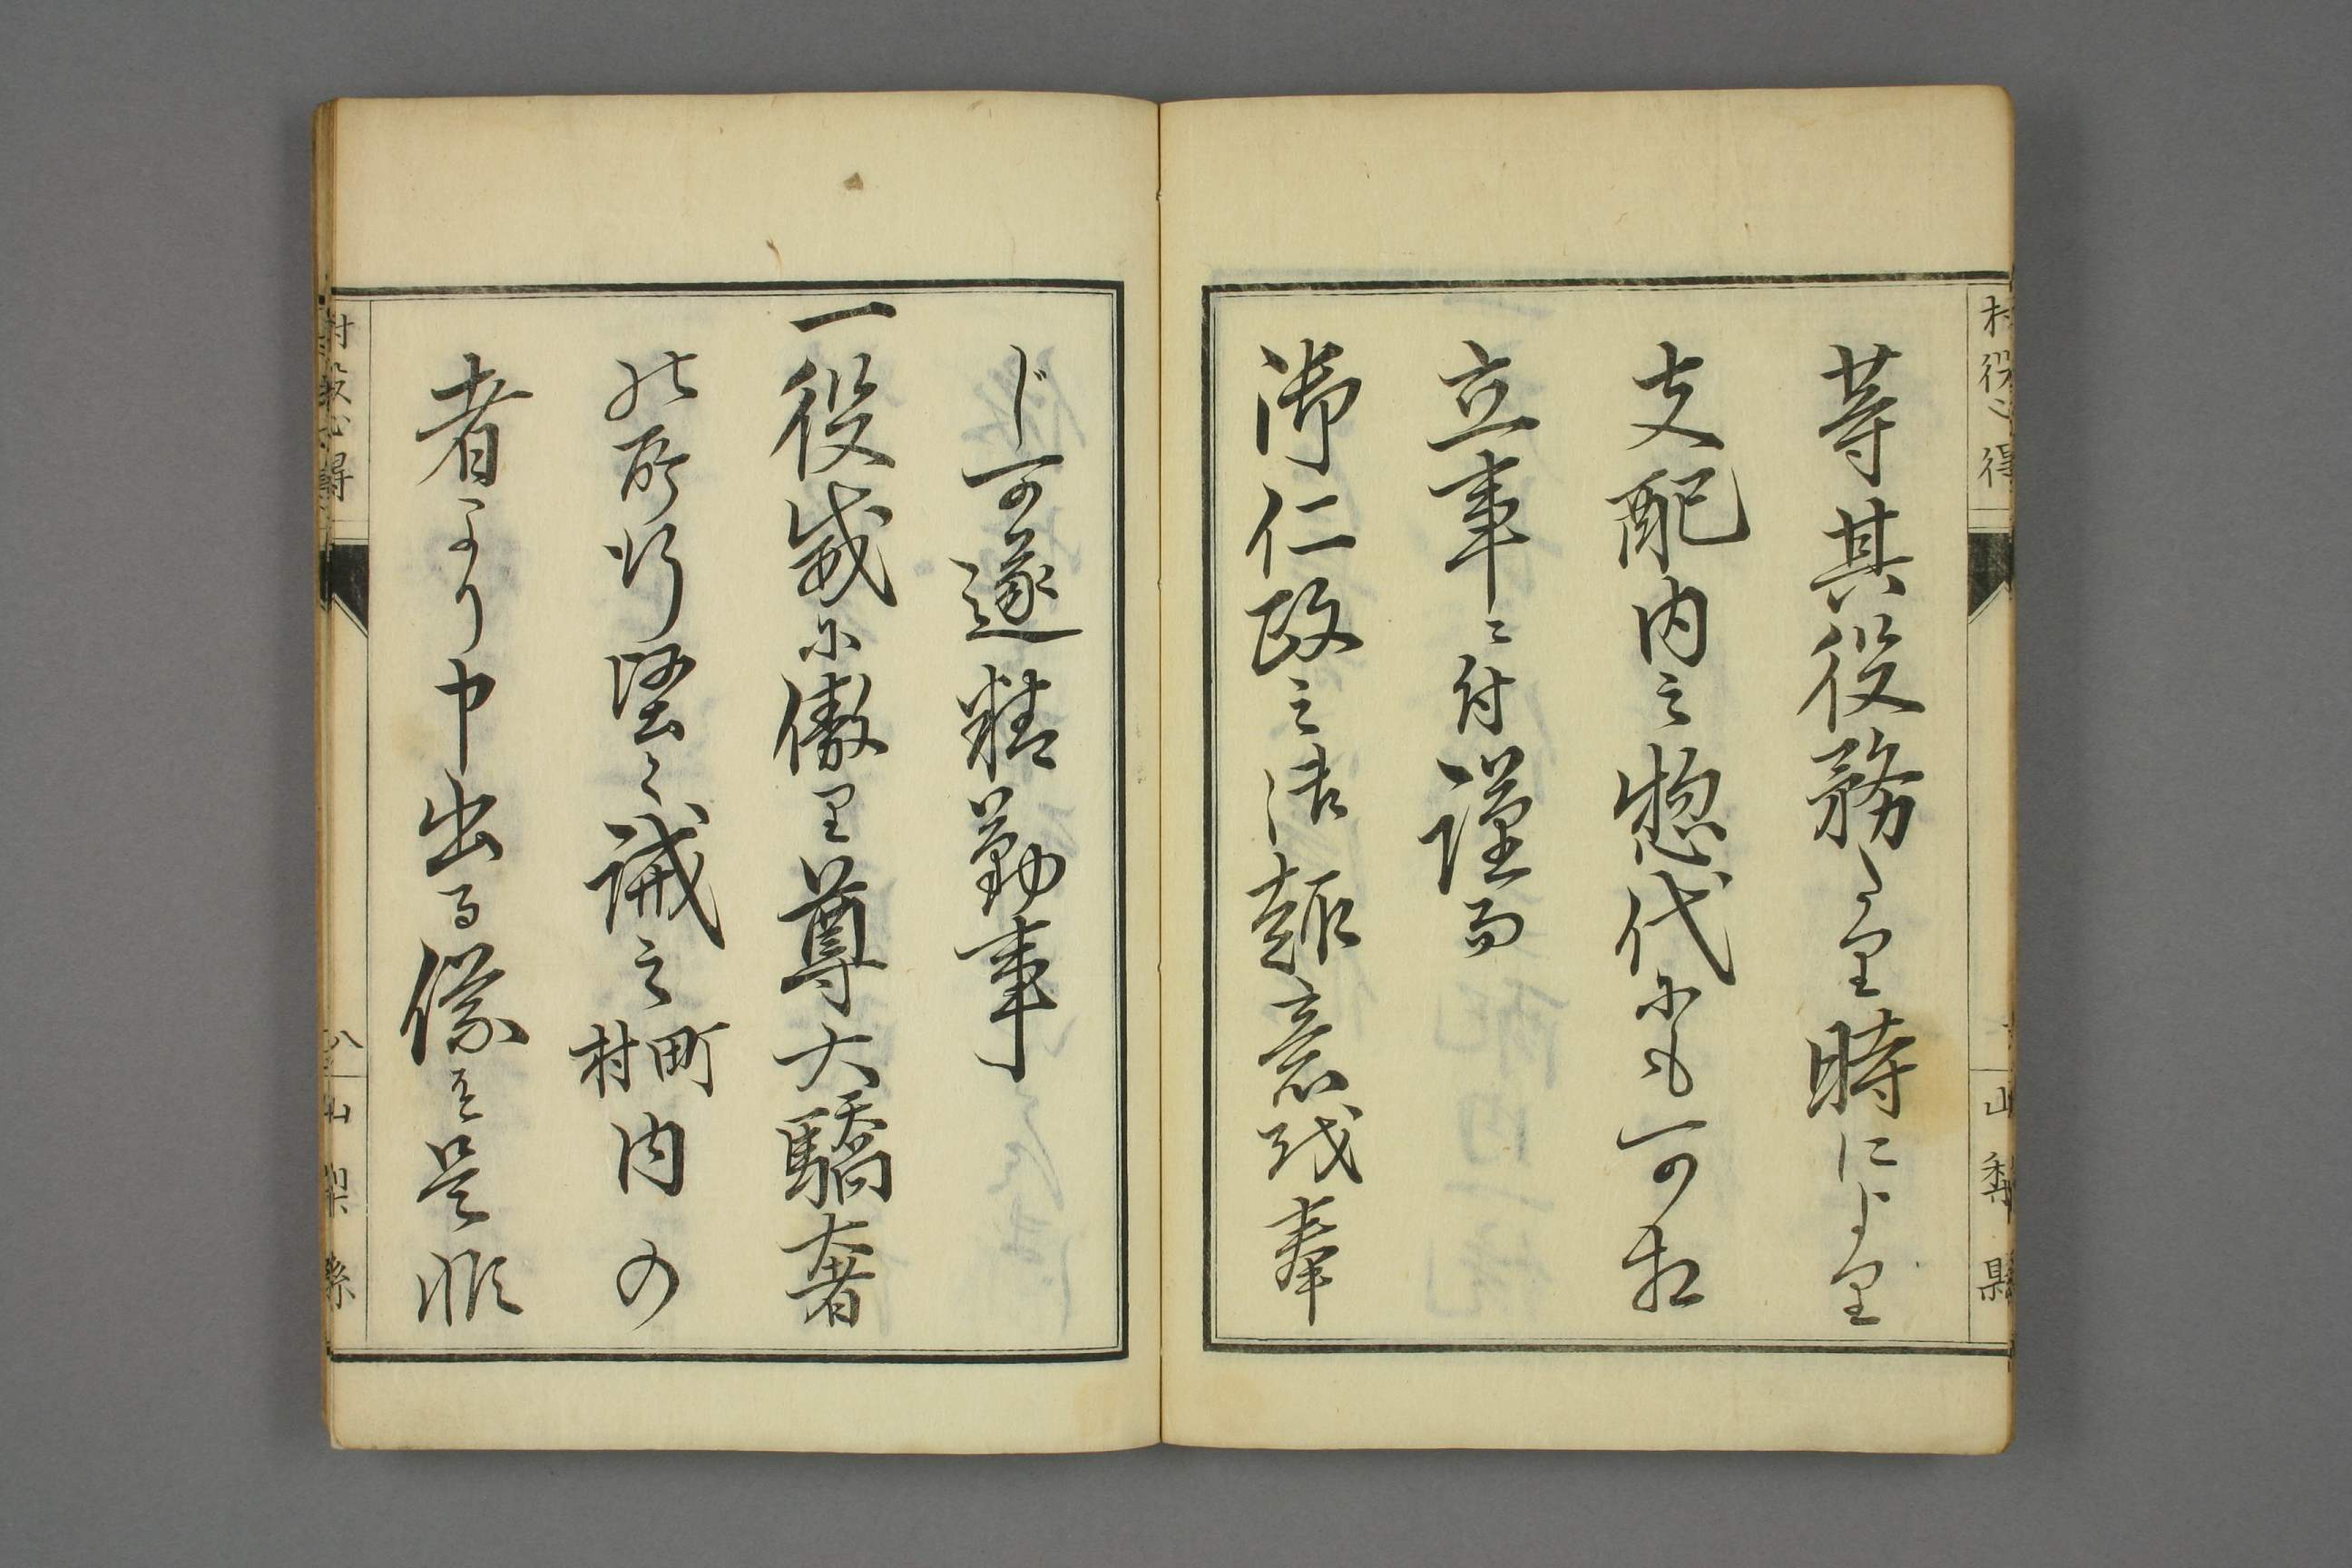 村役心得
山梨縣
等其役務たり時により
支配内之惣代にも可相
立事ニ付謹而
御仁政之御趣意を奉
じ可遂精勤事
一役威に傲り尊大驕奢
の所行堅く誡之町村内の
者より申出る儀は是非
村役心得
八
山梨縣